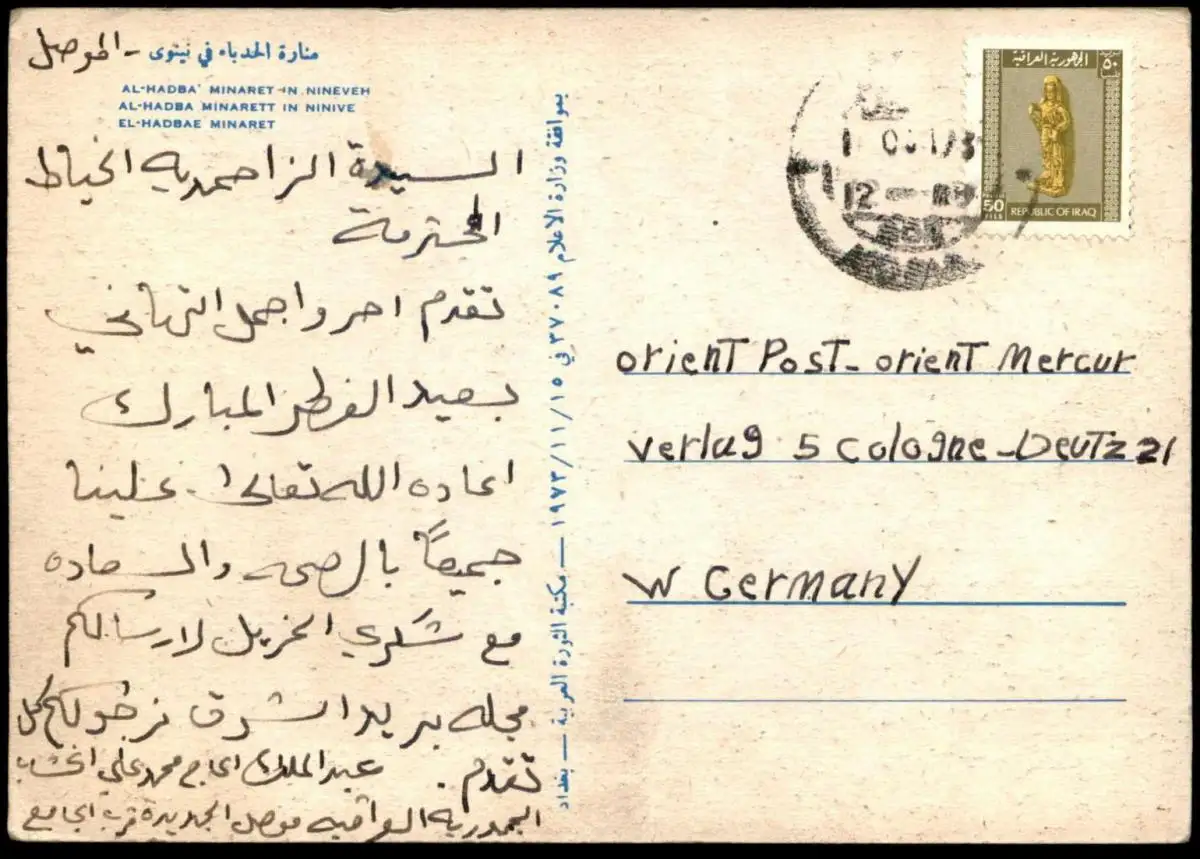 منارة الحدباء في نينوى - الموصل
AL-HADBA' MINARET IN NINEVEH
AL-HADBA MINARETT IN NINIVE
EL-HADBAE MINARET
السيدة الزا حمديه الخياط
المحترمة
تقدم احر واجمل التهاني
بعيد الفطر المبارك
اعاده الله تعالى علينا
جميعاً بالصحه والسعاده
مع شكري الجزيل لارسالكم
مجله بريد الشرق نرجو لكم كل
تقدم. عبدالملك الحاج محمد علي الخشاب
الجمهورية العراقيه موصل الجديدة قرب الجامع
بموافقة وزارة الاعلام ٣٧٠٨٩ في ١٩٧٣/١١/١٥ — مكتبة الثورة العربية — بغداد
الجمهورية العراقية
٥٠
50
FILS
REPUBLIC OF IRAQ
12
orient Post - orient Mercur
verlag 5 cologne - Deutz 21
W Germany